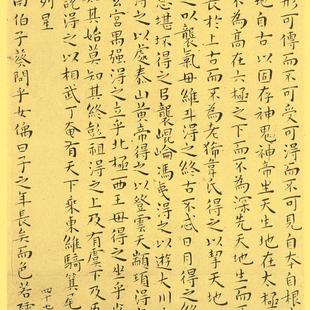 形可傳而不可受可得而不可見自本自根
地自古以固存神鬼神帝生天生地在太極
不為高在六極之下而不為深先天地生
長於上古而不為老豨韋氏得之以挈天地
之以襲氣母維斗得之終古不忒日月得之
息堪坏得之以襲崐崘馮夷得之以遊大川
得之以處泰山黃帝得之以登雲天顓頊得
玄宮禺强得之立乎北極西王母得之坐乎
其始莫知其終彭祖得之上及有虞下及
說得之以相武丁奄有天下乘東維騎箕尾
列星
南伯子葵問乎女偊曰子之年長矣而色若孺
四十七